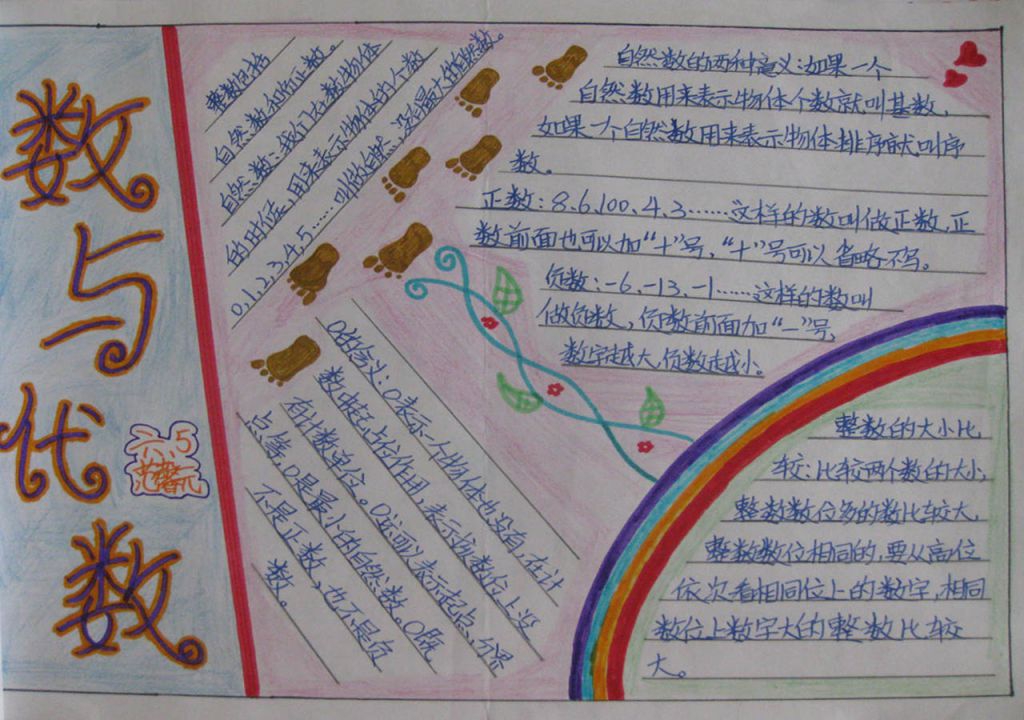 数与代数
六、5
整数包括
自然数和正数。
自然数:我们在数物体
的时候,用来表示物体的个数
0,1,2,3,4,5……叫做自然,没有最大的自然数。
自然数的两种意义:如果一个
自然数用来表示物体个数就叫基数,
如果一个自然数用来表示物体排序就叫序
数。
正数:8.6.100.4.3……这样的数叫做正数,正
数前面也可以加“+”号,“+”号可以省略不写。
负数:-6、-13、-1……这样的数叫
做负数,负数前面加“-”号,
数字越大,负数越小。
0的含义:0表示一个物体也没有,在计
数中起占位作用,表示该数位上没
有计数单位。0还可以表示起点,分界
点等,0是最小的自然数。0既
不是正数,也不是负
数。
整数的大小比
较:比较两个数的大小,
整数数位多的数比较大,
整数数位相同的,要从高位
依次看相同位上的数字,相同
数位上数字大的整数比较
大。